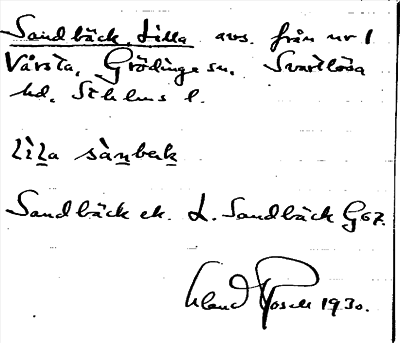 Sandbäck, Lilla avs. från nr 1
Vårsta, Grödinge sn. Svartlösa
hd. Sthlms l.
lìla sàn̲bæk̲
Sandbäck ek. L. Sandbäck G67.
Erland Rosell 1930.